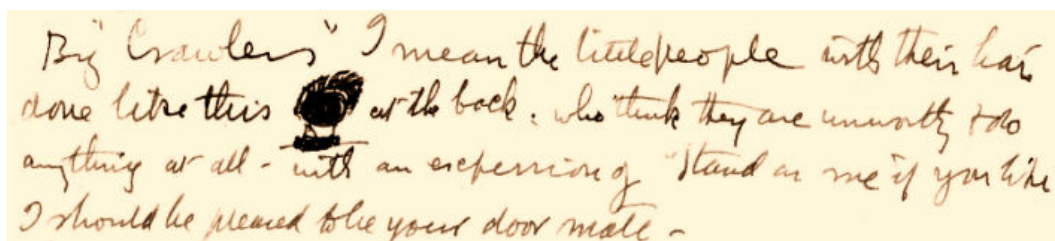 By "Crawlers" I mean the little people with their hair
done like this at the back. who think they are unworthy to do
anything at all - with an expression of "Stand on me if you like
I should be pleased to be your door matt -